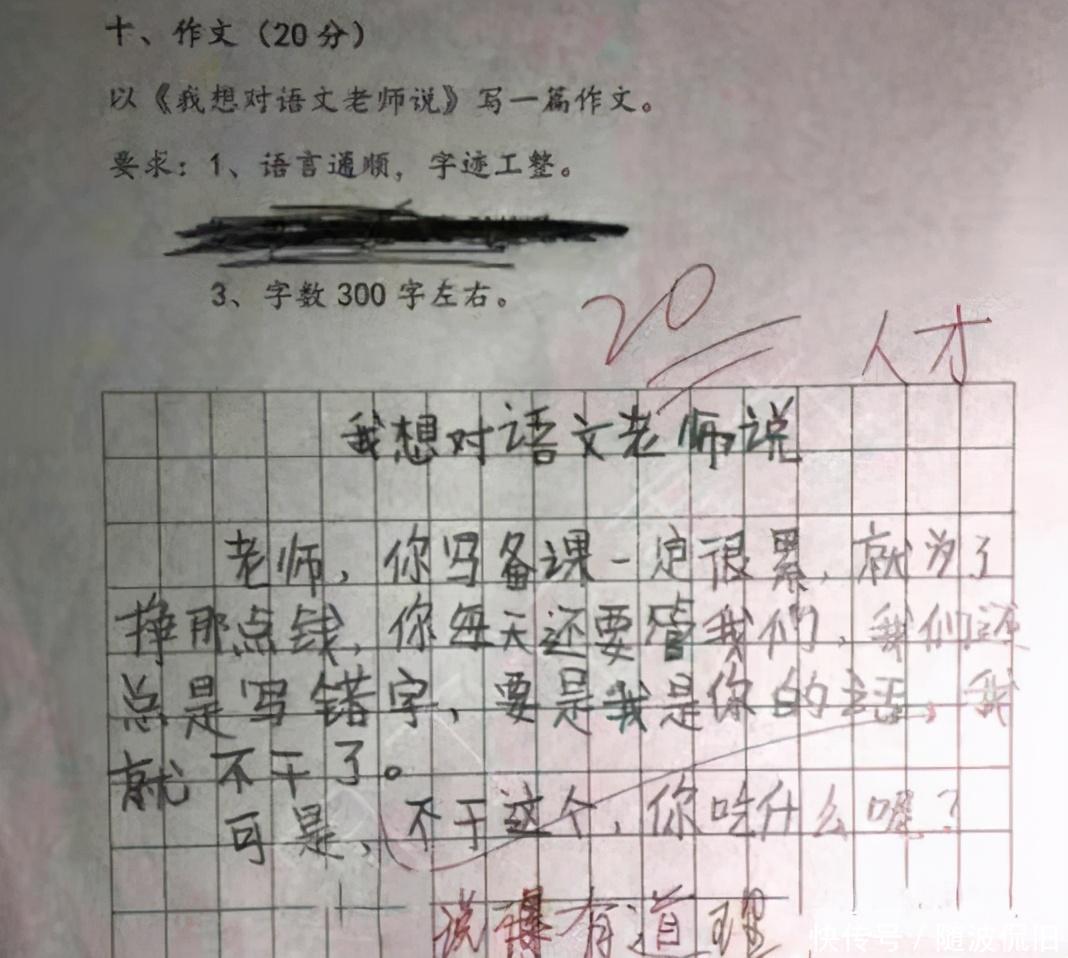 十、作文（20分）
以《我想对语文老师说》写一篇作文。
要求：1、语言通顺，字迹工整。
3、字数300字左右。
20
人才
我想对语文老师说
老师，你写备课一定很累，就为了
挣那点钱，你每天还要管我们，我们还
总是写错字，要是我是你的话，我
就不干了。
可是、不干这个，你吃什么呢？
说得有道理
快传号／随波侃旧